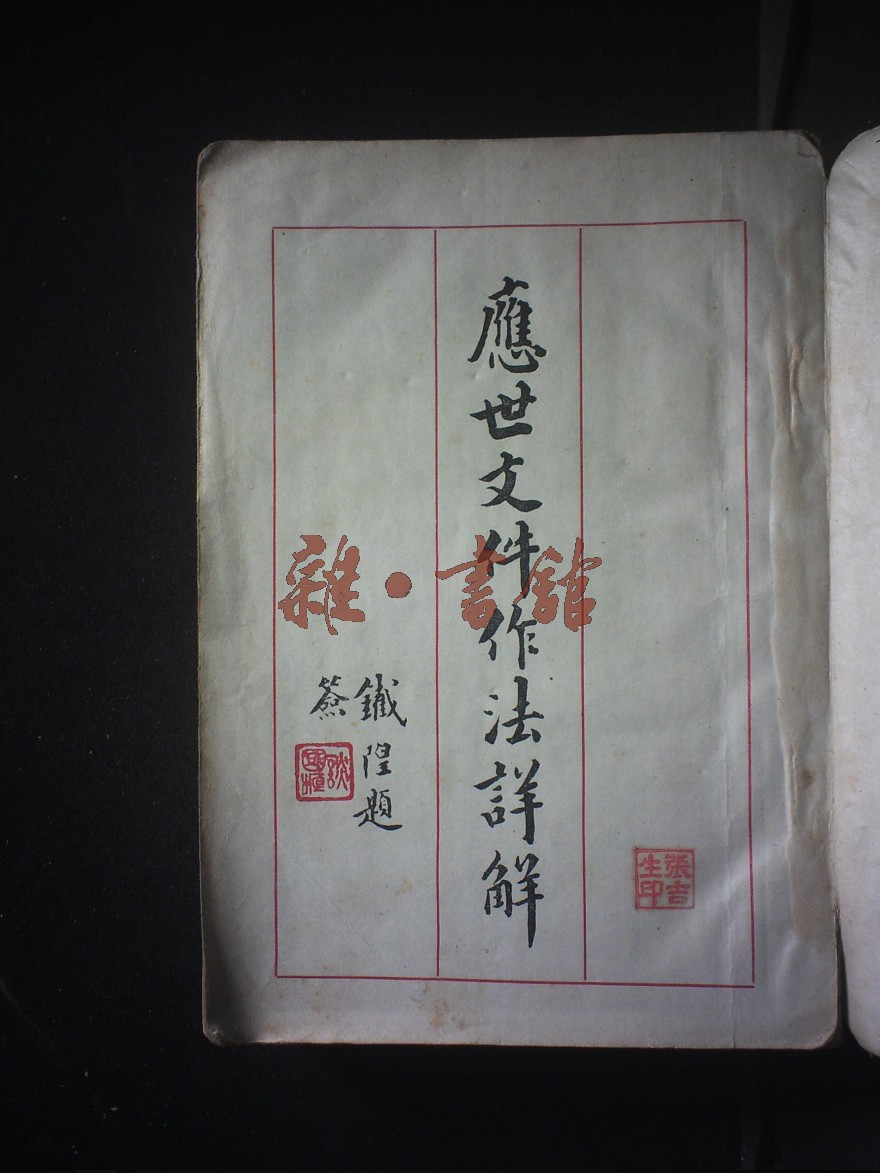 應世文件作法詳解
鐵隍題
簽
張吉
生印
雜·書館